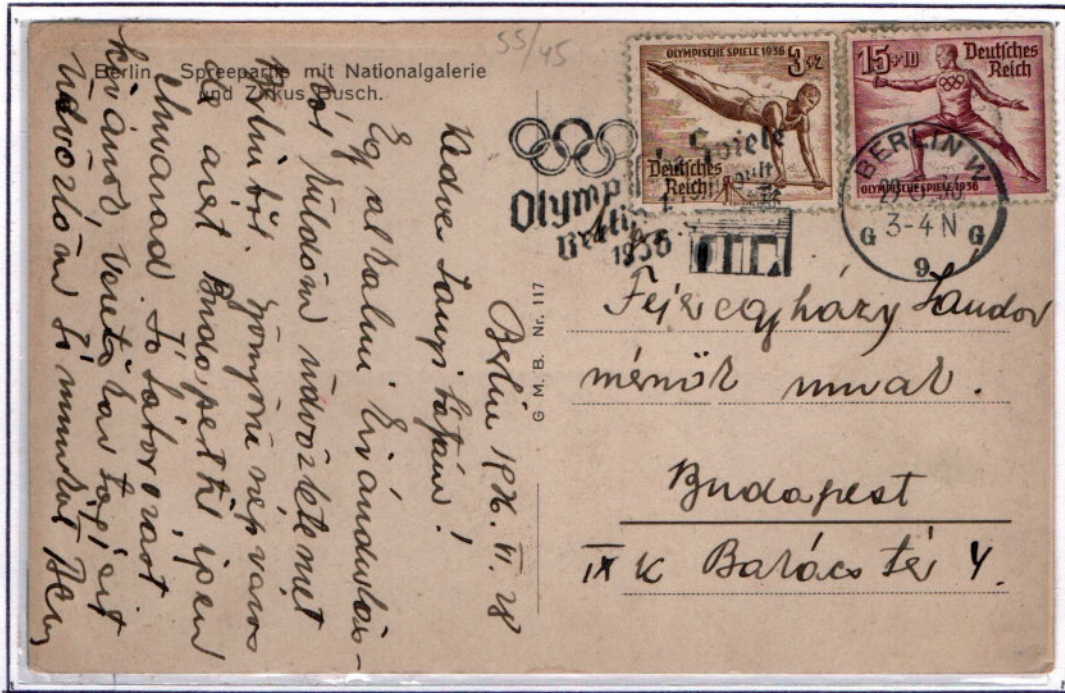 55/45
Berlin Spreepartie mit Nationalgalerie
und Zirkus Busch.
OLYMPISCHE SPIELE 1936 3+2
Deutsches
Reich
15+10 Deutsches
Reich
OLYMPISCHE SPIELE 1936
Olymp Spiele
Berlin
1936
BERLIN W
3-4 N
G G
9
G M. B. Nr. 117
Berlin 1936. VI. 28
Kedves Sanyi bátyám!
Egy alkalmi kirándulás-
ból küldöm üdvözletemet
Berlinből. Gyönyörű szép város
és azért Budapesttől
elmarad. Jó
kívánó, Veretékav
Üdvözlöm
Fejéregyházy Sándor
mérnök urnak.
Budapest
IX K Bakács tér 4.